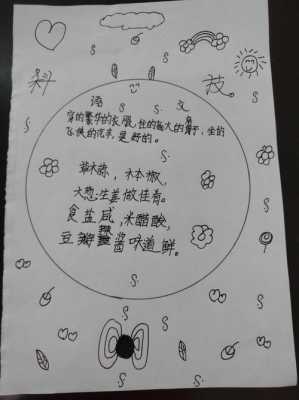 科 技
语 文
穿的繁华的衣服,住的高大的房子,坐的
飞快的汽车,是舒的。
木本椒,
大葱生姜做佳肴。
食盐咸,米醋酸,
豆瓣酱味道鲜。